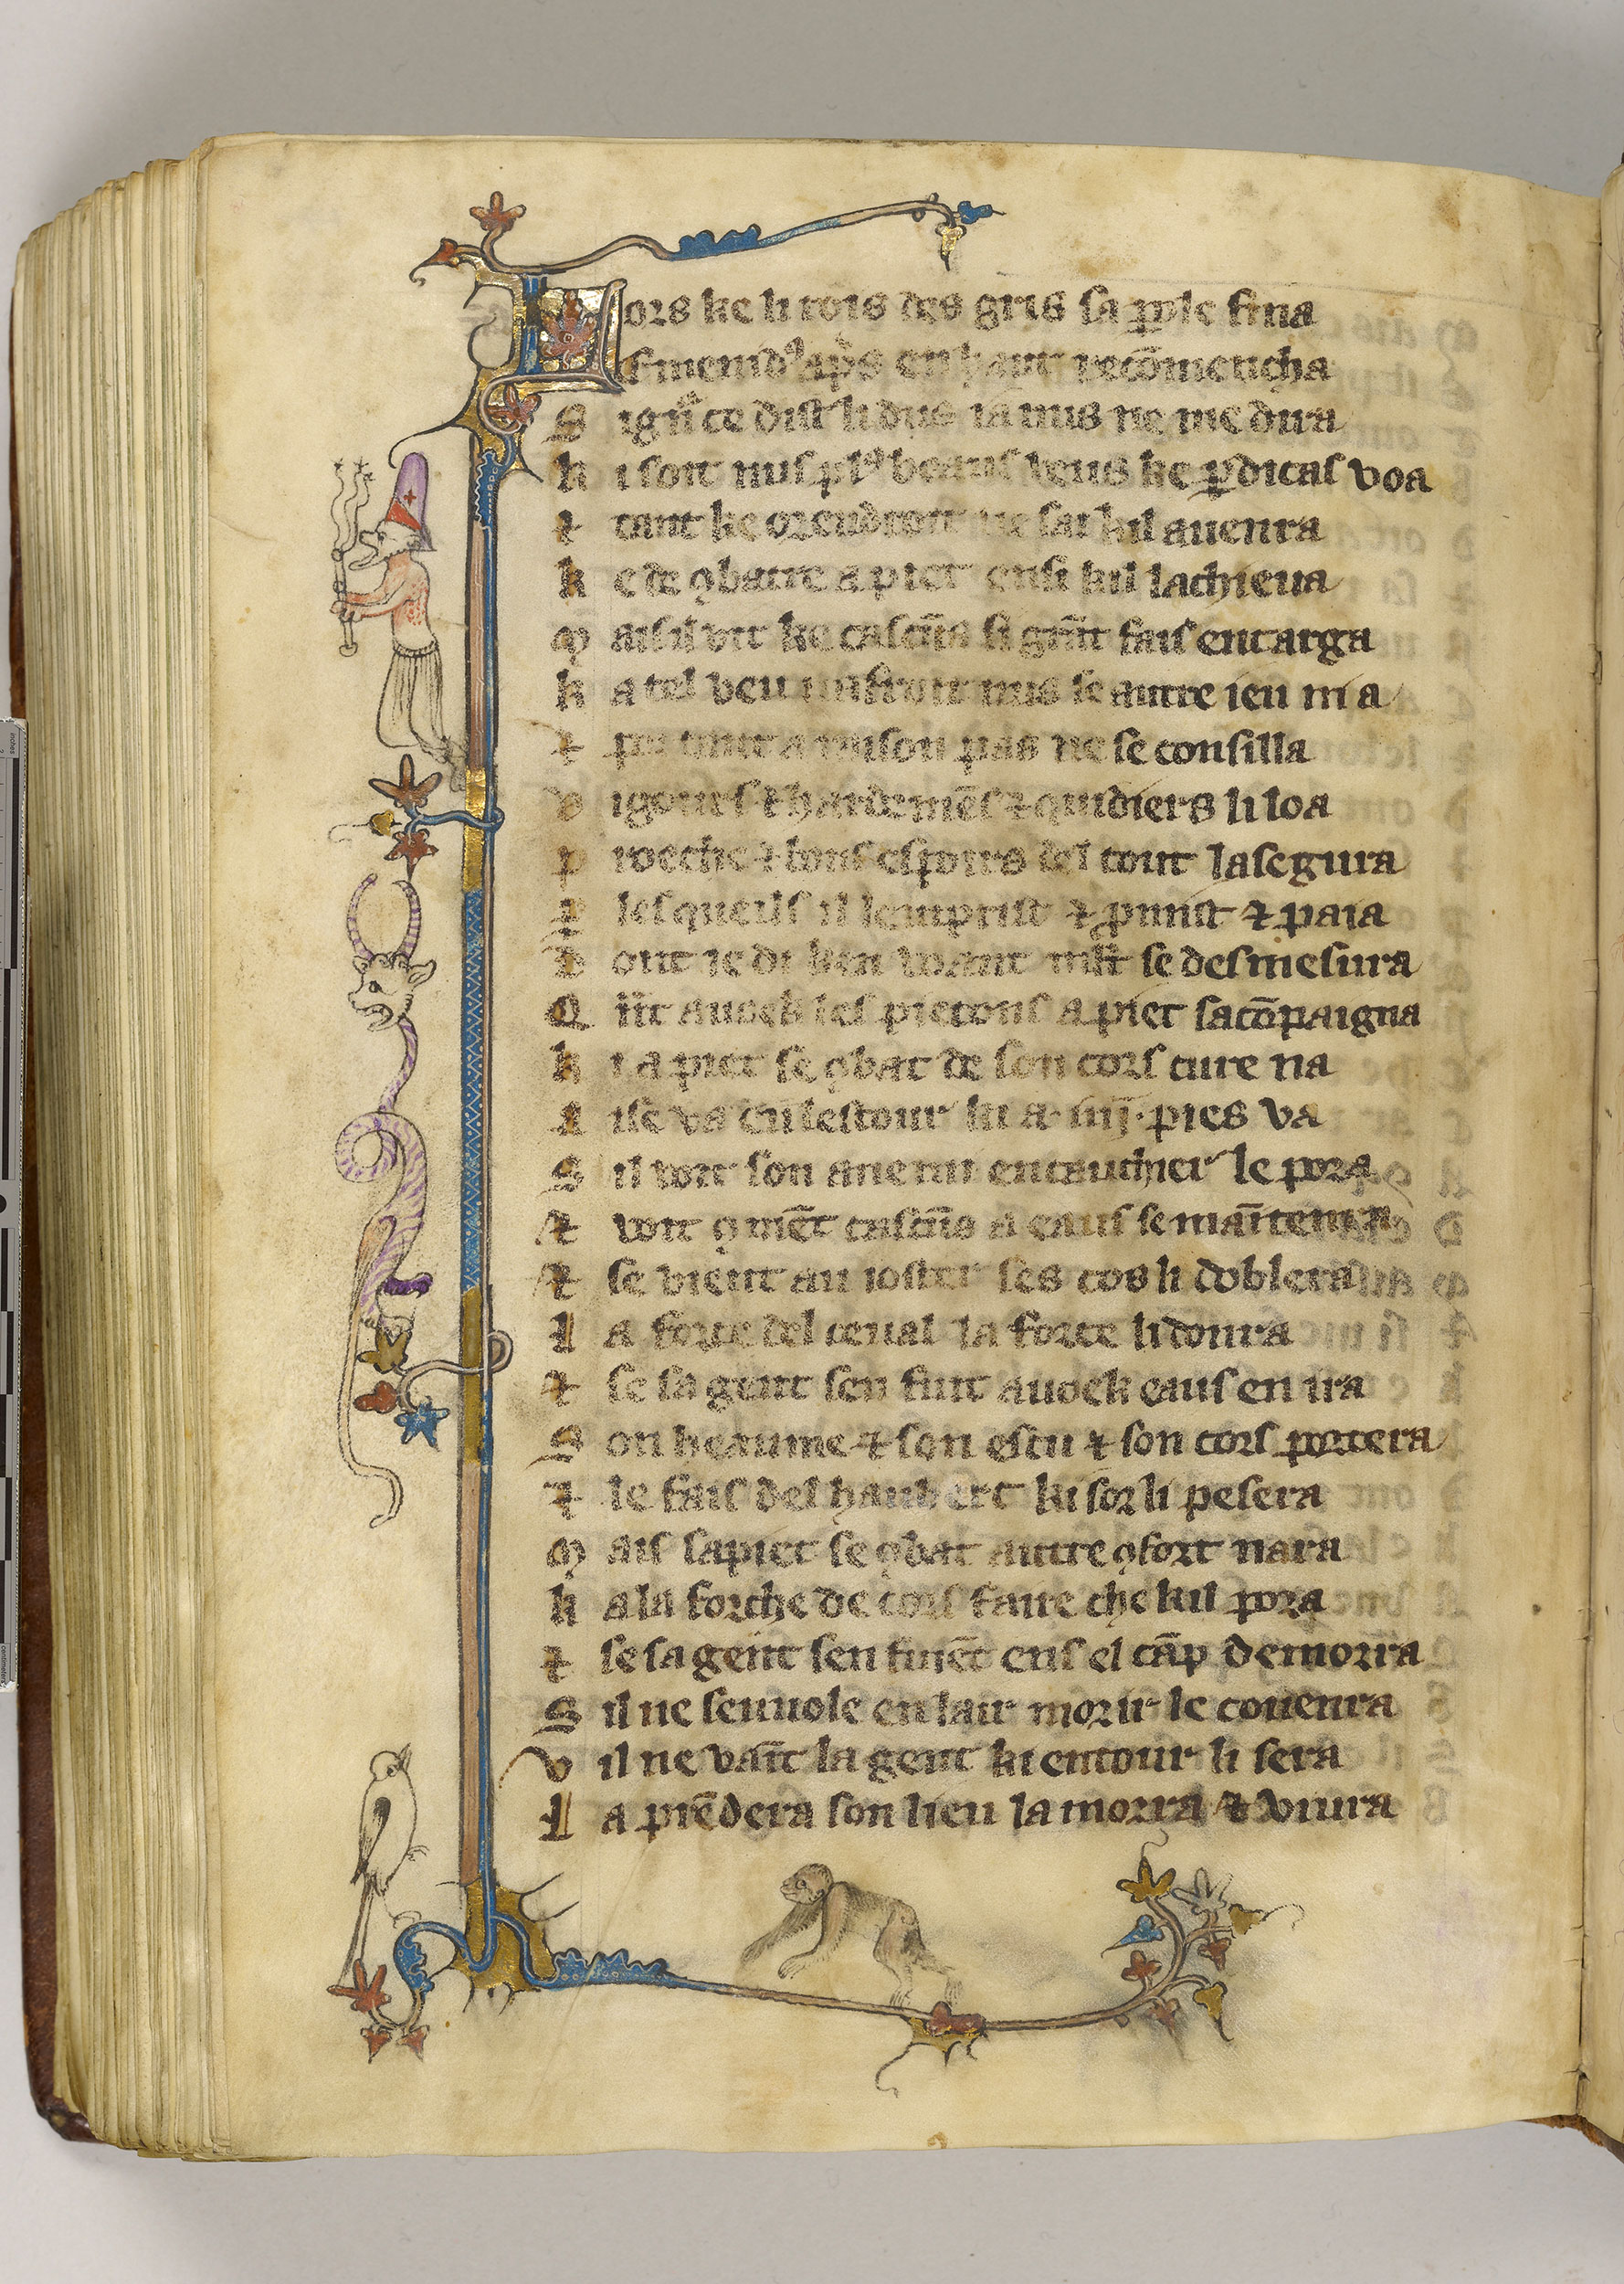 Lors ke li rois des gris sa ꝑole fina
Esmenidꝰ apͤs en haut recōmencha
S ignͬ ce dist li dus ia nus ne me dira
k i soit nus plꝰ beaus ieus ke ꝑdicas voa
⁊ tant ke orendroit ne sai kil auenra
k e de ꝯbatre a piet ensi kil lachieua
M ais il vit ke cascūs si grāt fais encarga
k a tel veu  nus se autre ieu ni a
⁊  a raison pas ne se consilla
V igours ⁊ hardemēs ⁊ quidiers li loa
P roeche ⁊ bons espoirs del tout lasegura
⁊ les queils il lenprist ⁊ ꝓmist ⁊ paia
D ont ie di ken  se desmesura
Q nͣt auoek les pietons a piet sacōpaigna
k i a piet se ꝯbat de son cors cure na
L i se va en lestour ki a ·iiij· pies va
S il voit son anemi encauchier le pora
⁊ voit ꝯmēt cascūs a eaus se māitenra
⁊ se vient au ioster ses cos li doblera
L a force del ceual la force li donra
⁊ se sa gent sen fuit auoek eaus en ira
S on heaume ⁊ son escu ⁊ son cors portera
⁊ le fais del haubert ki sor li pesera
M ais sapiet se ꝯbat autre ꝯfort nara
k a la forche de cors faire che kil pora
⁊ se sa gent sen fuiēt ens el cāp demorra
S il ne senuole en lair morir le couenra
V il ne vaīt la gent ki entour li sera
L a prēdera son lieu la morra ⁊ viura